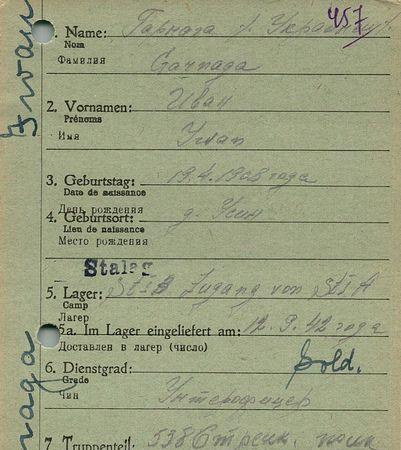 457
1. Name: Гарнага /. Украинец
Nom
Фамилия Garnaga
2. Vornamen: Иван
Prénoms
Имя Iwan
3. Geburtstag: 19.4.1908 года
Date de naissance
День рождения
4. Geburtsort: д. Усин
Lieu de naissance
Место рождения
Stalag
5. Lager: St I B Zugang von St I A
Camp
Лагер
5a. Im Lager eingeliefert am: 12.9.42 года
Доставлен в лагер (число)
6. Dienstgrad: Sold.
Grade
Чин Унтерофицер
7. Truppenteil: 538 Стрелк. полк
Iwan
naga